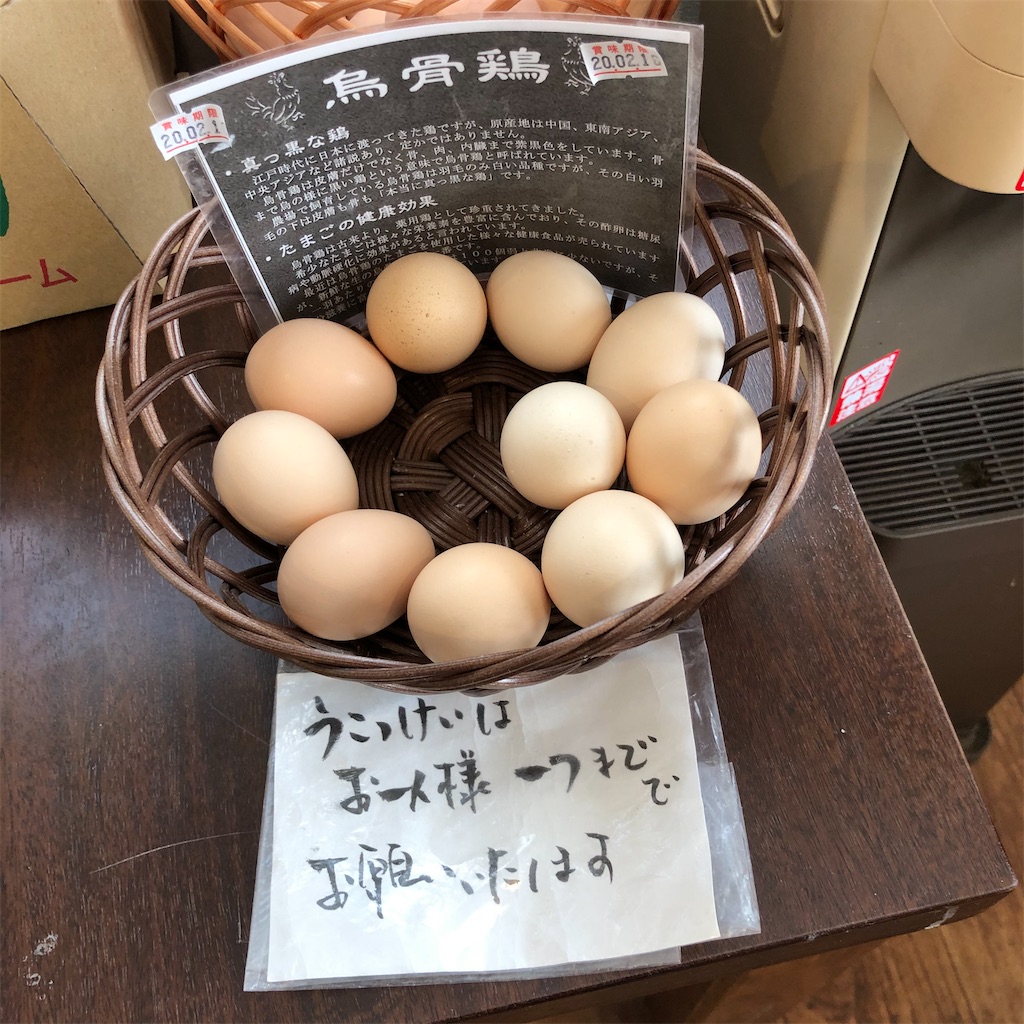 烏骨鶏
賞味期限
20.02.1
賞味期限
20.02.1
・真っ黒な鶏
江戸時代に日本に渡ってきた鶏ですが、原産地は中国、東南アジア、
中央アジアなど諸説あり、定かではありません。
烏骨鶏は皮膚だけでなく骨、肉、内臓まで紫黒色をしています。骨
まで烏の様に黒い鶏という意味で烏骨鶏と呼ばれています。
農場で飼育している烏骨鶏は羽毛のみ白い品種ですが、その白い羽
毛の下は皮膚も骨も「本当に真っ黒な鶏」です。
・たまごの健康効果
烏骨鶏は古来より、薬用鶏として珍重されてきました。
希少なたまごは様々な栄養素を豊富に含んでおり、その酢卵は糖尿
病や動脈硬化に効果があると言われています。
最近は烏骨鶏のたまごを使用した様々な健康食品が売られています
が、新鮮な生の
ーム
うこっけいは
お一人様 一つまで
で
お願いいたします